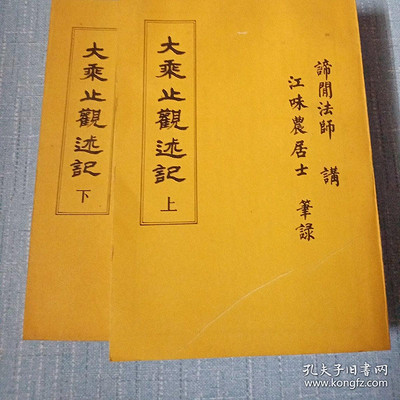 諦閒法師 講
江味農居士 筆錄
大乘止觀述記 上
大乘止觀述記 下
孔夫子旧书网
kongfz.com